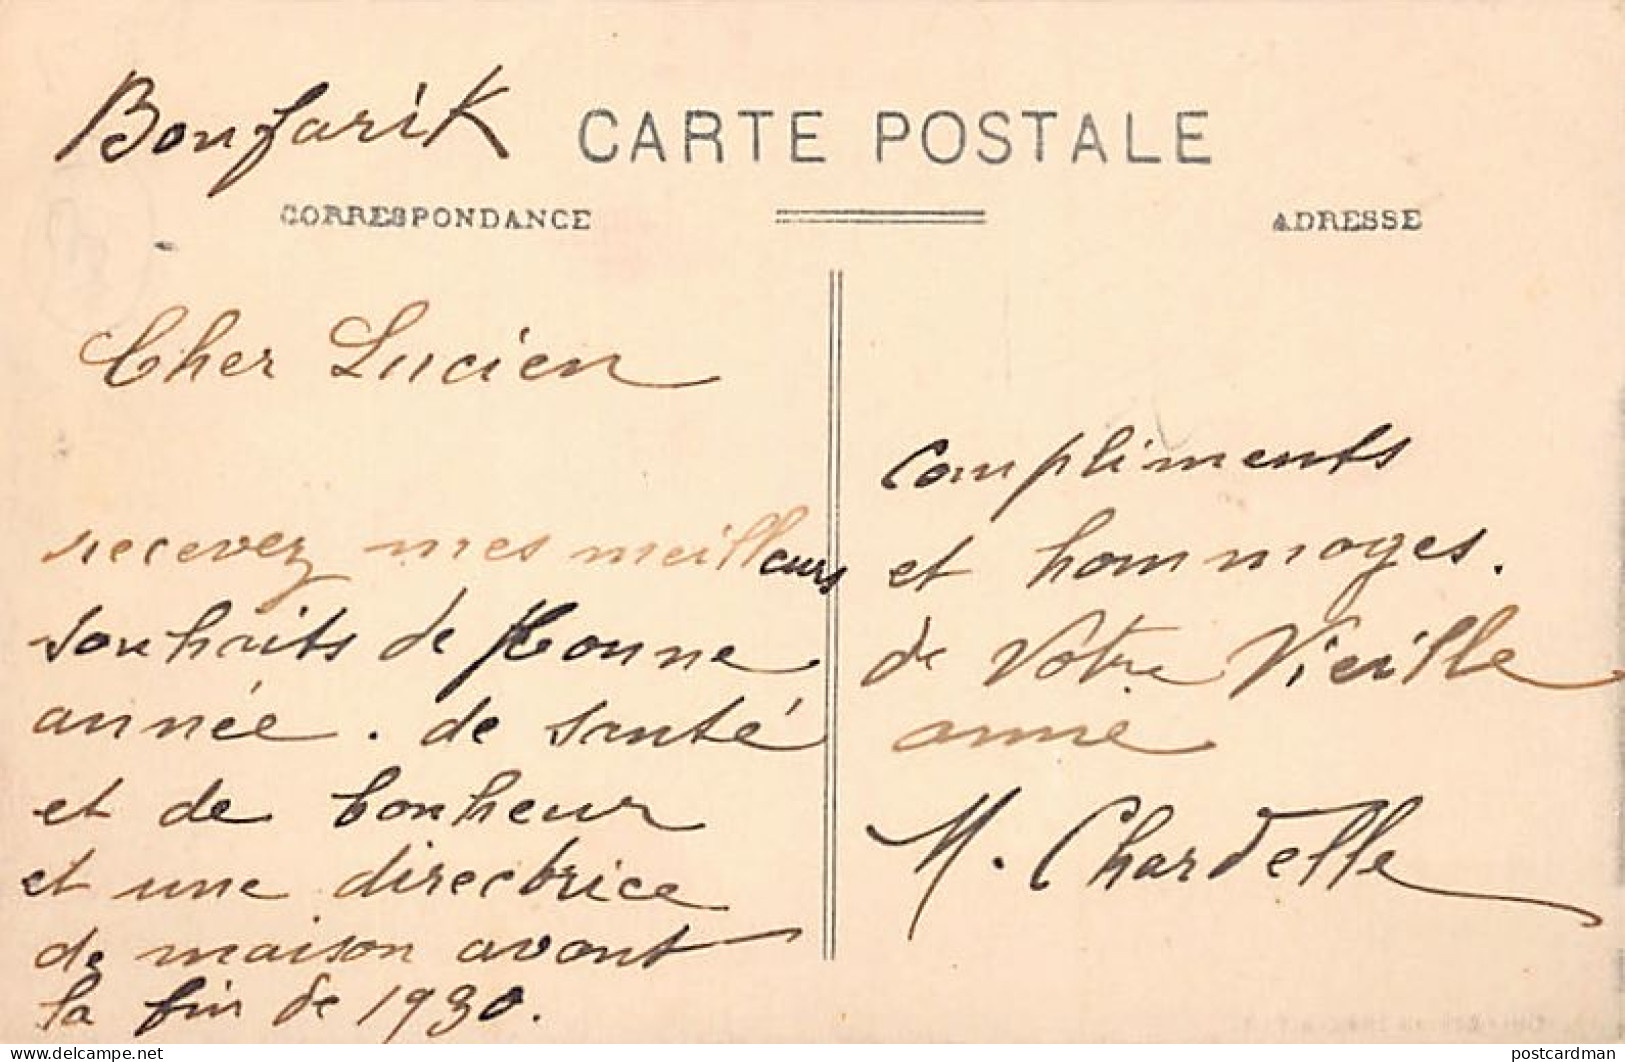 Boufarik
CARTE POSTALE
CORRESPONDANCE
ADRESSE
Cher Lucien
recevez mes meilleurs
souhaits de Bonne
année . de santé
et de bonheur
et une directrice
de maison avant
la fin de 1930.
Compliments
et hommages.
de Votre Vieille
amie
M. Chardelle
postcardman